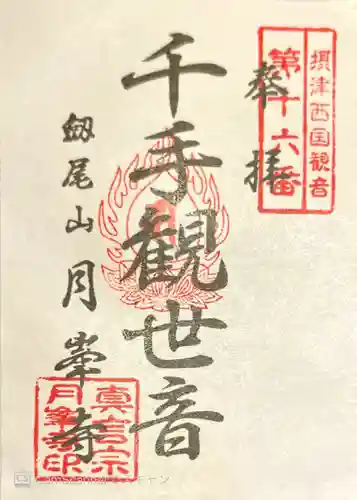 摂津西国観音
第十六番
奉拝
千手観世音
劔尾山
月峯寺
真言宗
月峯寺印